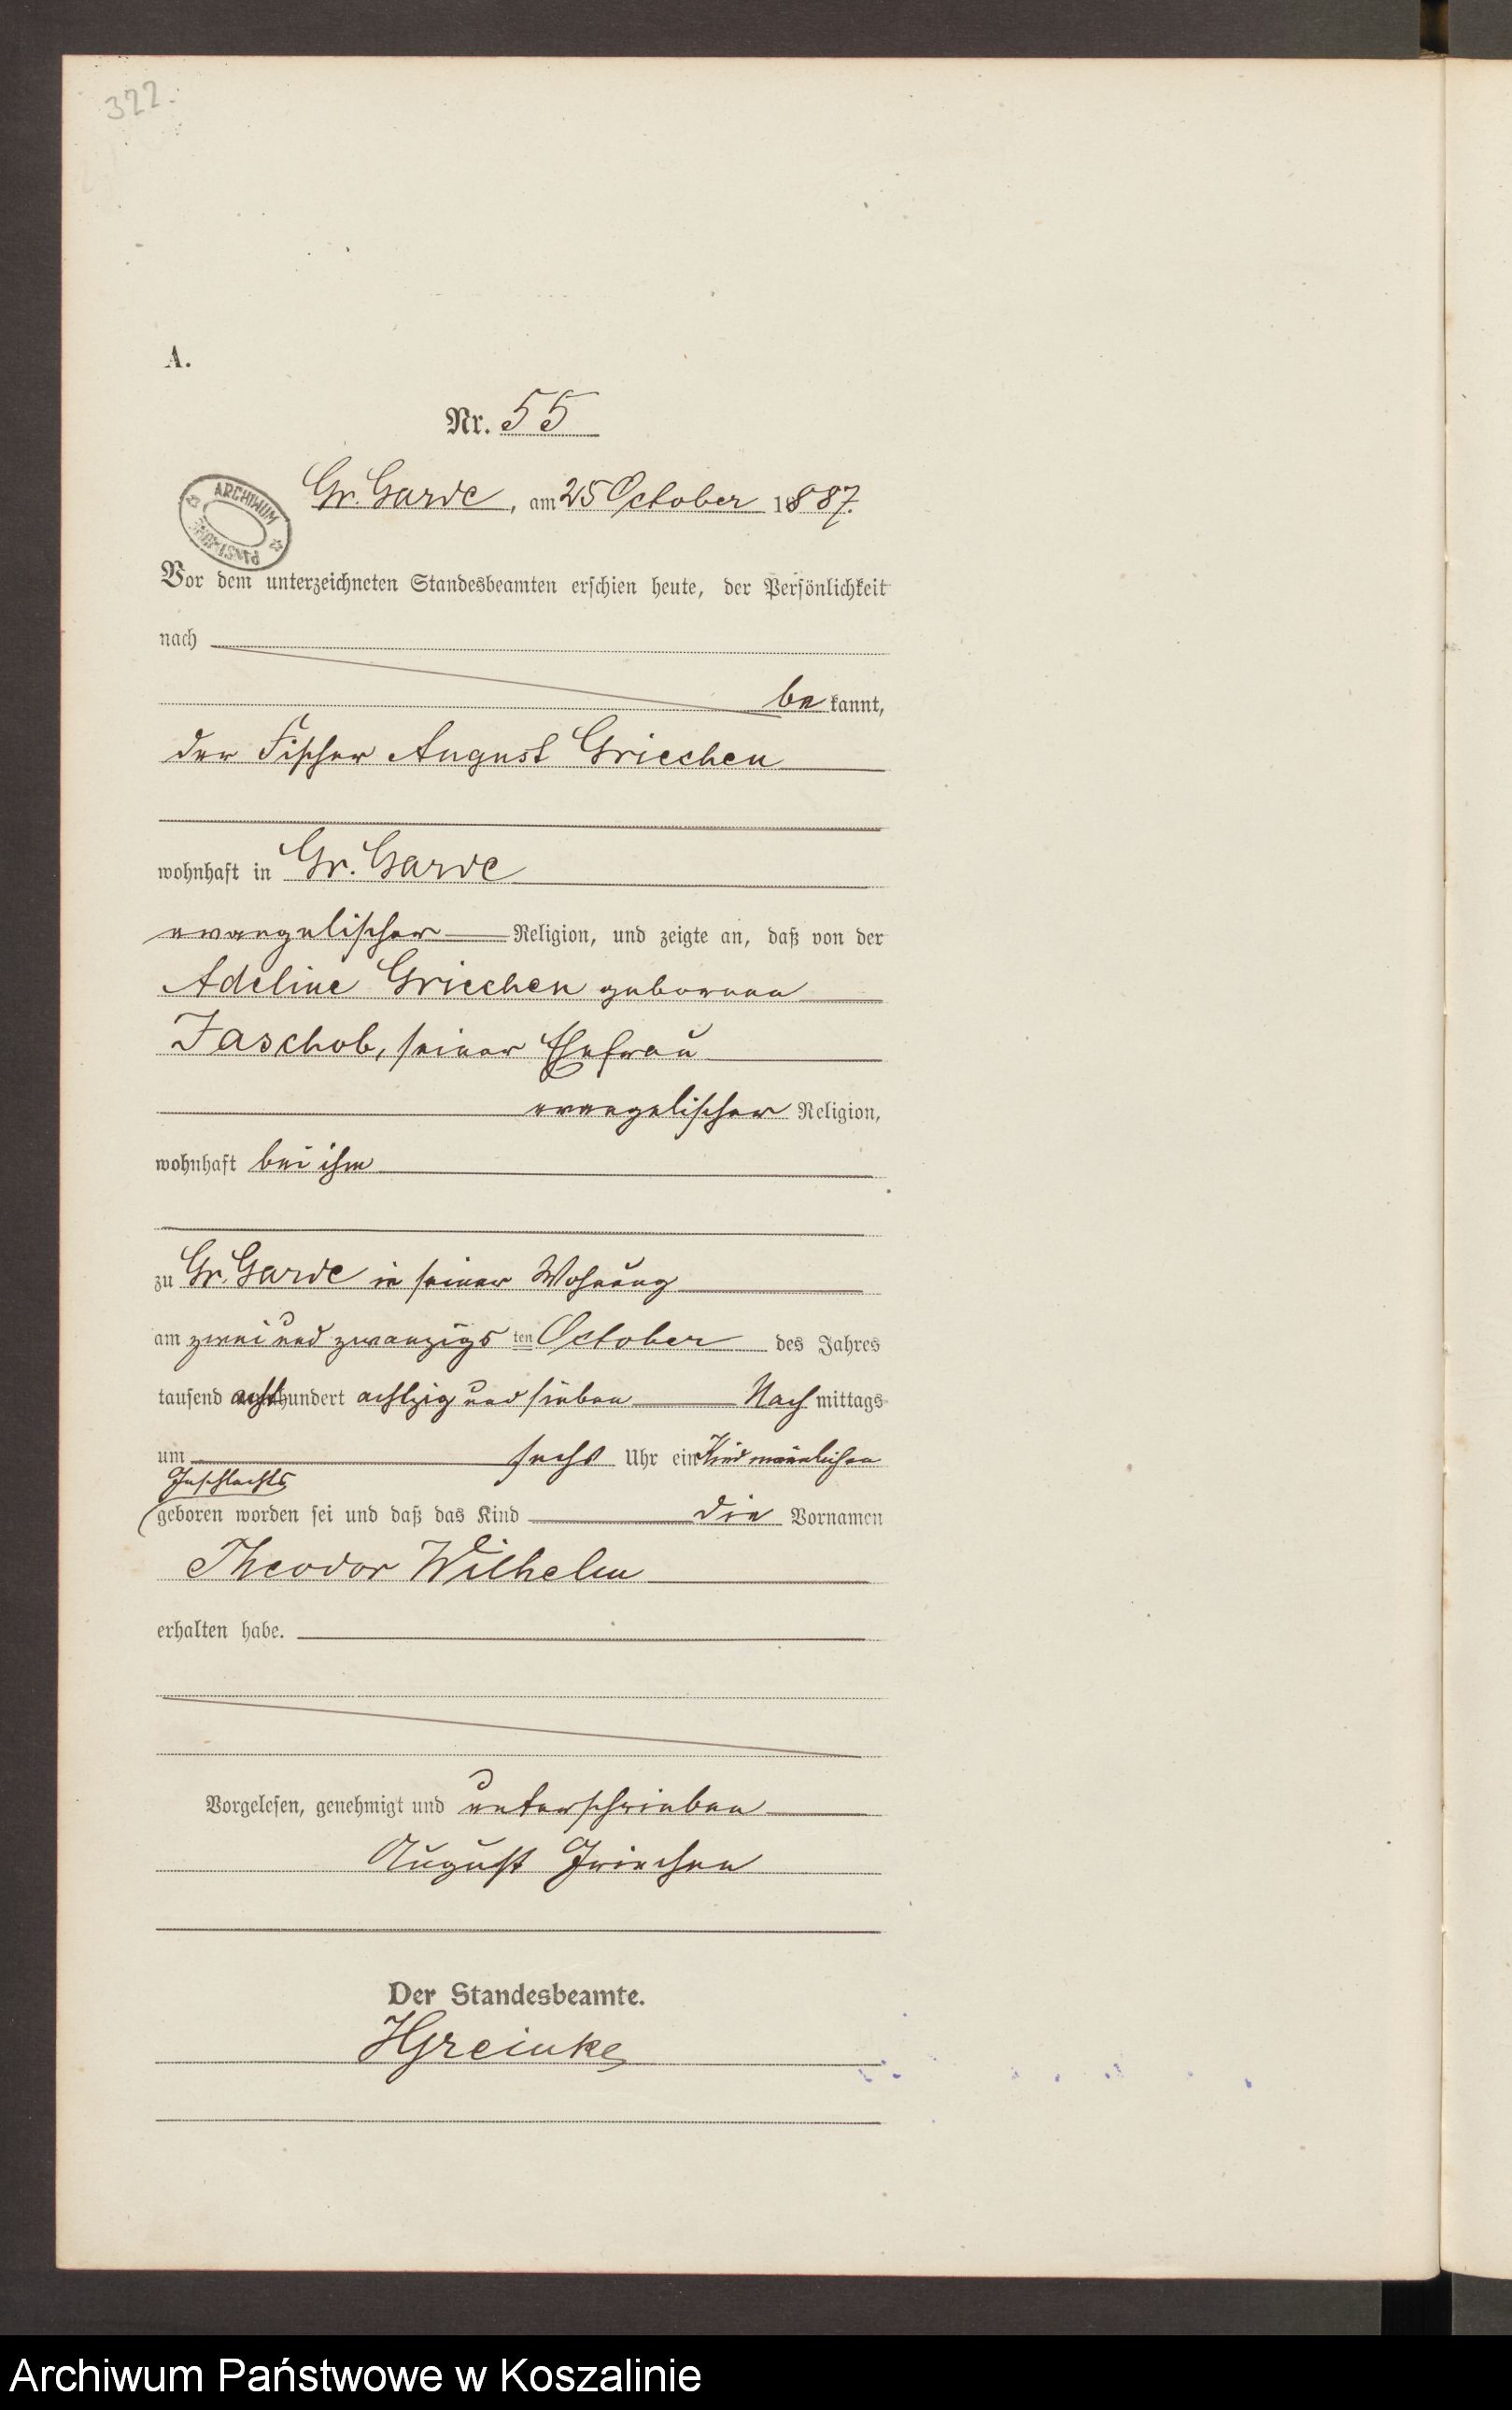 322.
A.
Nr. 55
ARCHIWUM
Gr. Garde, am 25 October 1887.
Vor dem unterzeichneten Standesbeamten erschien heute, der Persönlichkeit
nach
bekannt,
der Fischer August Griechen
wohnhaft in Gr. Garde
evangelischer Religion, und zeigte an, daß von der
Adeline Griechen geborenen
Jaschob, seiner Ehefrau
evangelischer Religion,
wohnhaft bei ihm
zu Gr. Garde in seiner Wohnung
am zwei und zwanzigsten October des Jahres
tausend achthundert achtzig und sieben Nachmittags
um sechs Uhr ein Kind männlichen
Geschlechts
geboren worden sei und daß das Kind die Vornamen
Theodor Wilhelm
erhalten habe.
Vorgelesen, genehmigt und unterschrieben
August Griechen
Der Standesbeamte.
HGreinke
Archiwum Państwowe w Koszalinie